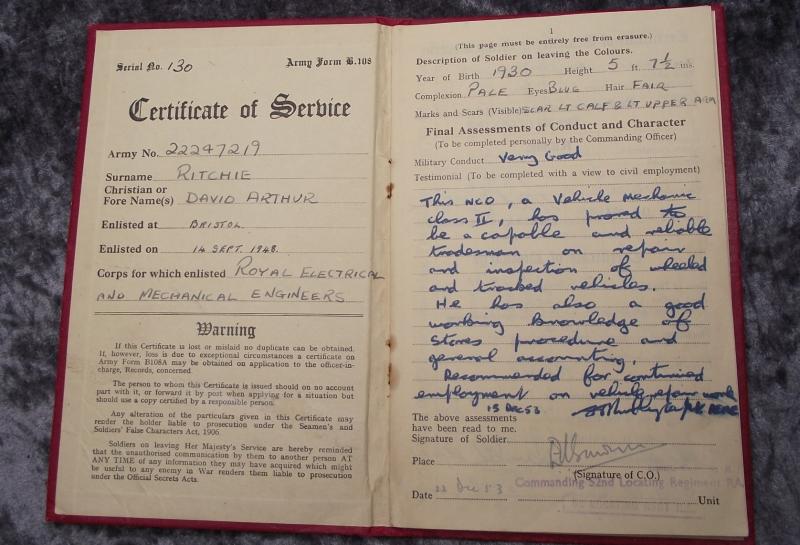 Serial No. 130 Army Form B.108
Certificate of Service
Army No. 22247219
Surname RITCHIE
Christian or
Fore Name(s) DAVID ARTHUR
Enlisted at BRISTOL
Enlisted on 14 SEPT. 1948.
Corps for which enlisted ROYAL ELECTRICAL
AND MECHANICAL ENGINEERS
Warning
If this Certificate is lost or mislaid no duplicate can be obtained.
If, however, loss is due to exceptional circumstances a certificate on
Army Form B108A may be obtained on application to the officer-in-
charge, Records, concerned.
The person to whom this Certificate is issued should on no account
part with it, or forward it by post when applying for a situation but
should use a copy certified by a responsible person.
Any alteration of the particulars given in this Certificate may
render the holder liable to prosecution under the Seamen's and
Soldiers' False Characters Act, 1906.
Soldiers on leaving Her Majesty's Service are hereby reminded
that the unauthorised communication by them to another person AT
ANY TIME of any information they may have acquired which might
be useful to any enemy in War renders them liable to prosecution
under the Official Secrets Acts.
1
(This page must be entirely free from erasure.)
Description of Soldier on leaving the Colours.
Year of Birth 1930 Height 5 ft. 7½ ins.
Complexion PALE Eyes BLUE Hair FAIR
Marks and Scars (Visible) SCAR LT CALF & LT UPPER ARM
Final Assessments of Conduct and Character
(To be completed personally by the Commanding Officer)
Military Conduct Very Good
Testimonial (To be completed with a view to civil employment)
This NCO, a Vehicle Mechanic
class II, has proved to
be a capable and reliable
tradesman on repair
and inspection of wheeled
and tracked vehicles.
He has also a good
working knowledge of
Stores procedure and
general accounting.
Recommended for continued
employment on vehicle repair work
15 DEC 53
The above assessments
have been read to me.
Signature of Soldier
Place
(Signature of C.O.)
Commanding 52nd Locating Regiment RA
Date 22 Dec 53 Unit